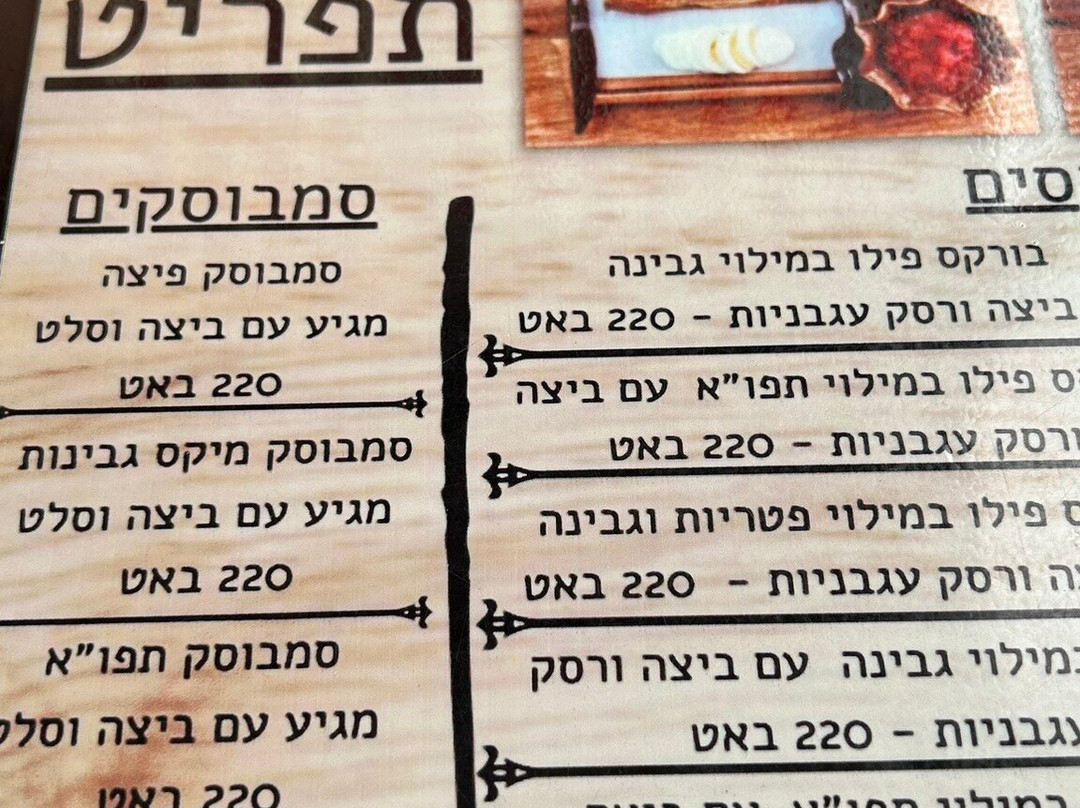 תפריט
סמבוסקים
סמבוסק פיצה
מגיע עם ביצה וסלט
220 באט
סמבוסק מיקס גבינות
מגיע עם ביצה וסלט
220 באט
סמבוסק תפו״א
מגיע עם ביצה וסלט
220 באט
בורקס פילו במילוי גבינה
ביצה ורסק עגבניות - 220 באט
פילו במילוי תפו״א עם ביצה
ורסק עגבניות - 220 באט
פילו במילוי פטריות וגבינה
ורסק עגבניות - 220 באט
במילוי גבינה עם ביצה ורסק
עגבניות - 220 באט